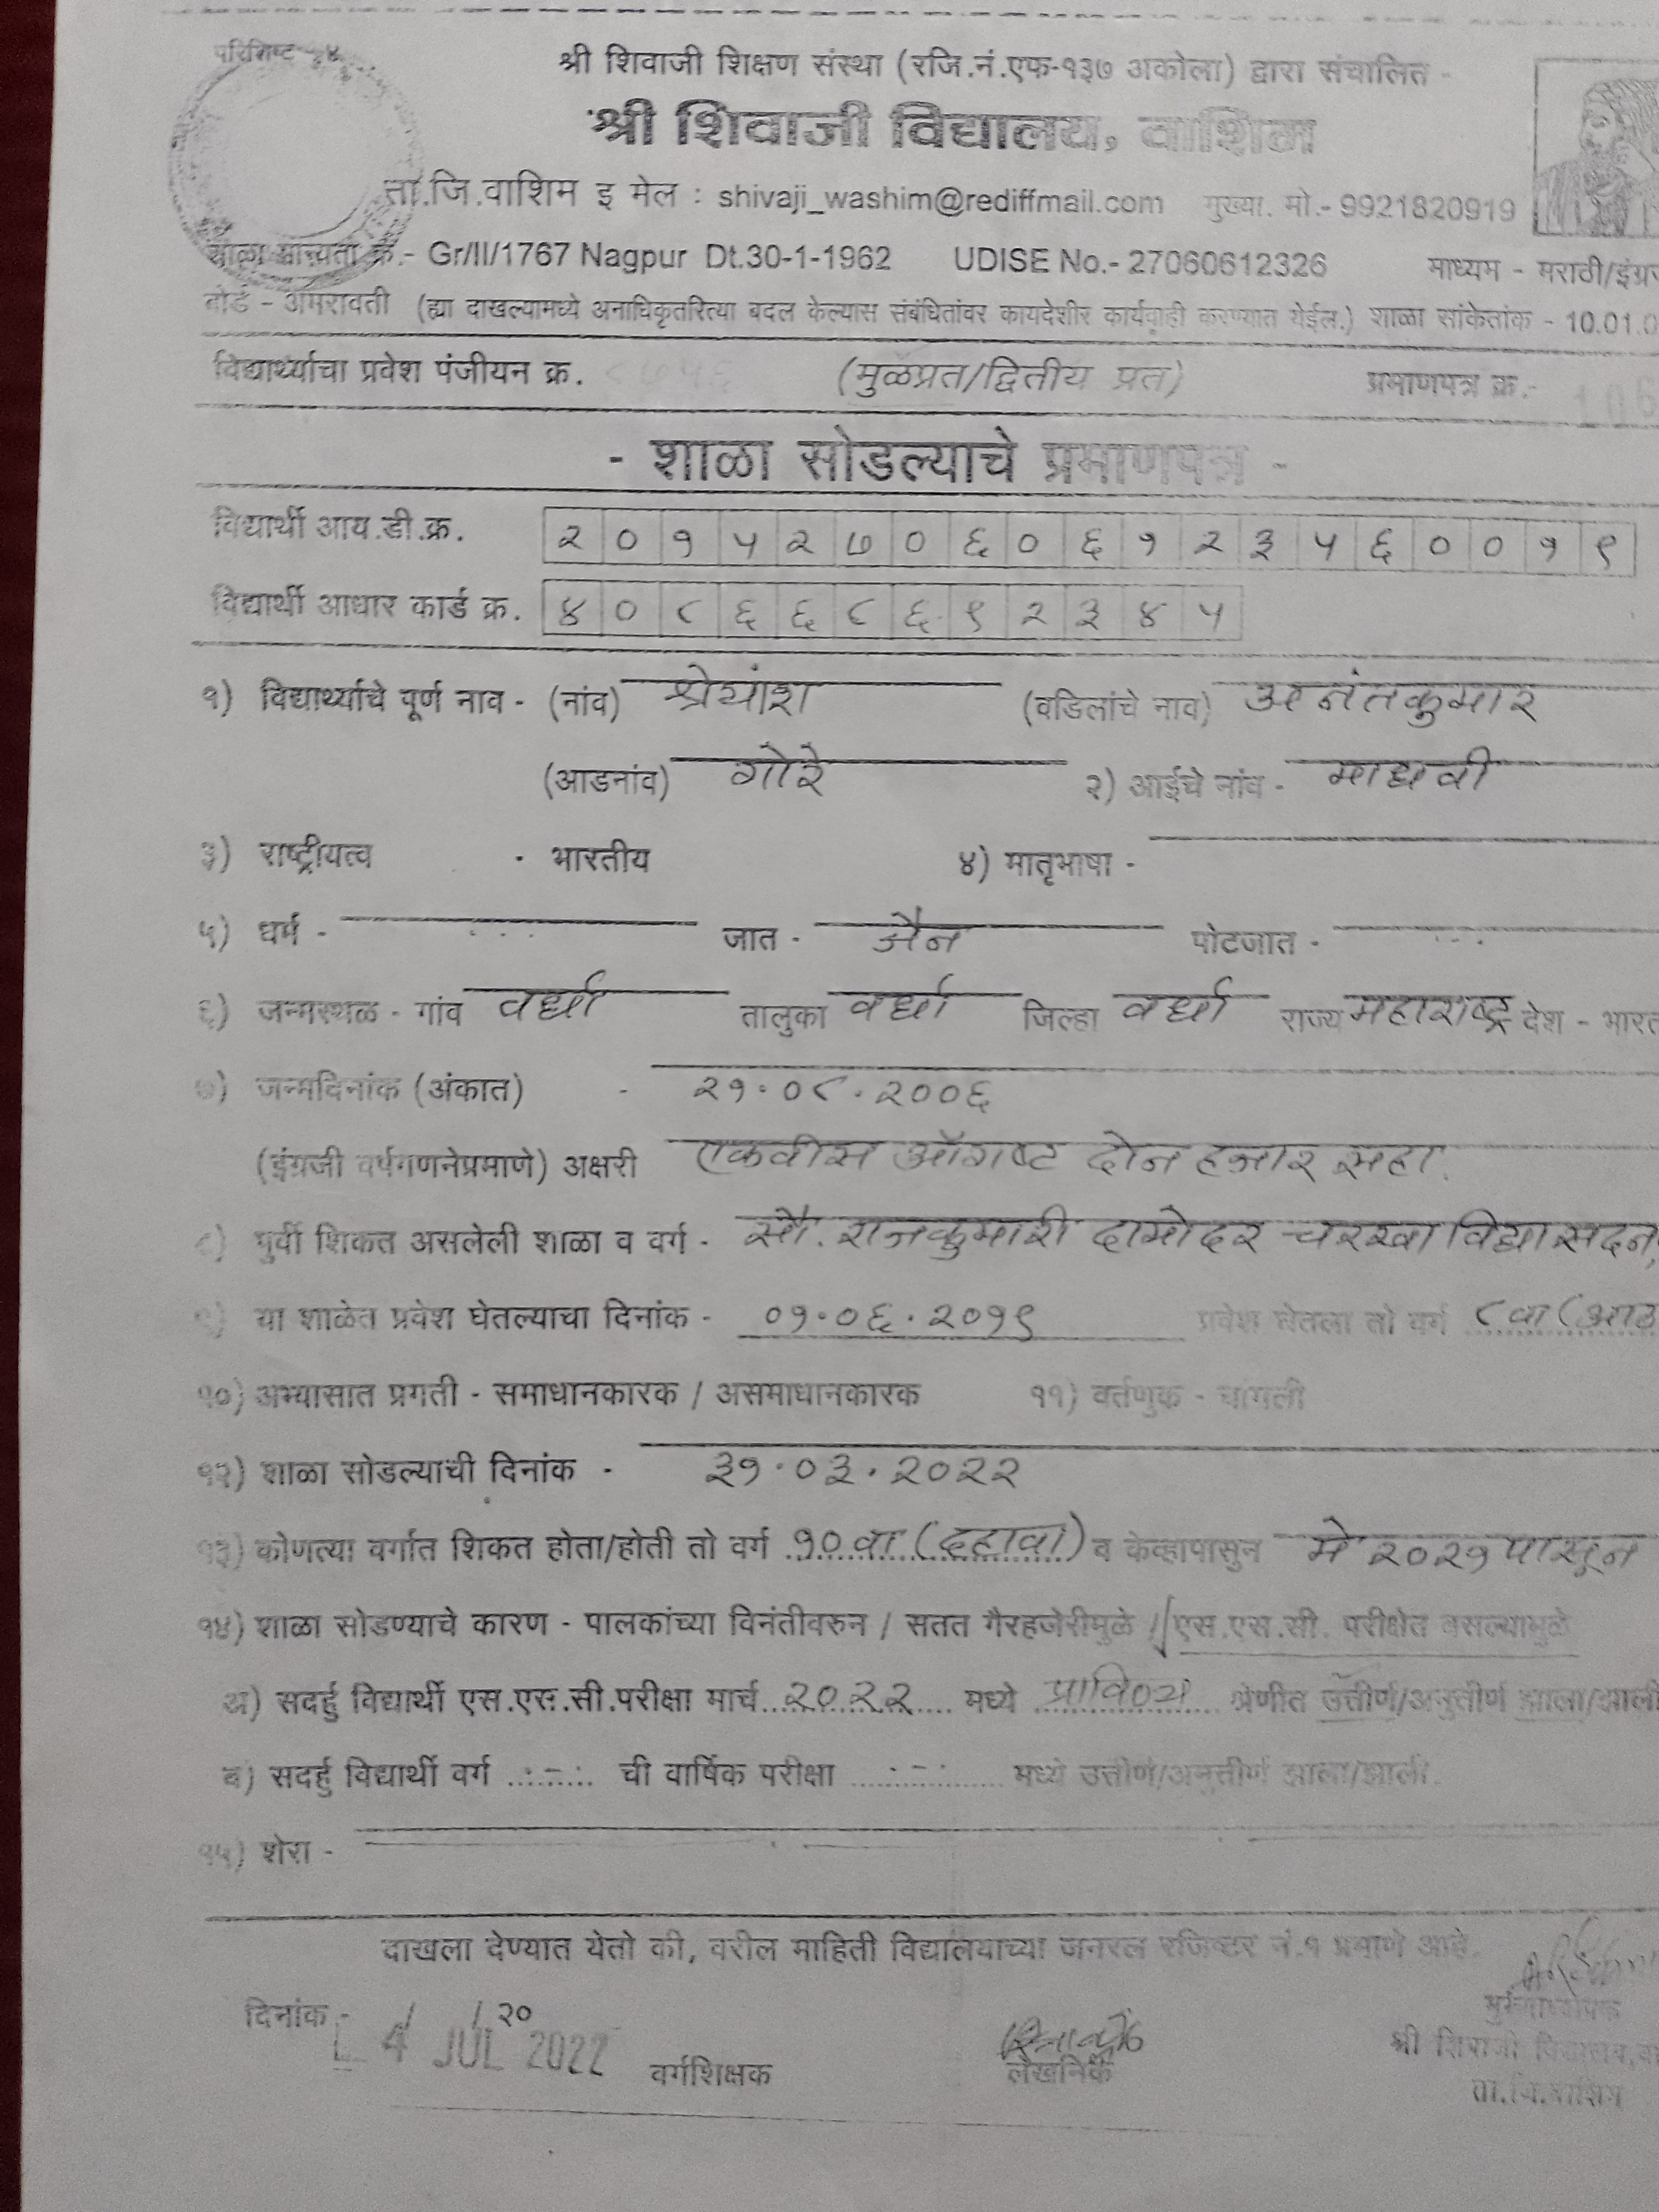 परिशिष्ट - ४
श्री शिवाजी शिक्षण संस्था (रजि.नं.एफ-१३७ अकोला) द्वारा संचालित -
श्री शिवाजी विद्यालय, वाशिम
ता.जि.वाशिम इ मेल : shivaji_washim@rediffmail.com मुख्या. मो.- 9921820919
शाळा मान्यता क्र.- Gr/II/1767 Nagpur Dt.30-1-1962 UDISE No.- 27060612326 माध्यम - मराठी/इंग्र
बोर्ड - अमरावती (ह्या दाखल्यामध्ये अनाधिकृतरित्या बदल केल्यास संबंधितांवर कायदेशीर कार्यवाही करण्यात येईल.) शाळा सांकेतांक - 10.01.0
विद्यार्थ्याचा प्रवेश पंजीयन क्र. (मुळप्रत/द्वितीय प्रत) प्रमाणपत्र क्र.- 106
- शाळा सोडल्याचे प्रमाणपत्र -
विद्यार्थी आय.डी.क्र. २ ० १ ५ २ ७ ० ६ ० ६ १ २ ३ ५ ६ ० ० १ ९
विद्यार्थी आधार कार्ड क्र. ४ ० ८ ६ ६ ८ ६ ९ २ ३ ४ ५
१) विद्यार्थ्याचे पूर्ण नाव - (नांव) श्रेयांश (वडिलांचे नाव) अनंतकुमार
(आडनांव) गोरे २) आईचे नांव - माधवी
३) राष्ट्रीयत्व - भारतीय ४) मातृभाषा -
५) धर्म - जात - जैन पोटजात -
६) जन्मस्थळ - गांव वर्धा तालुका वर्धा जिल्हा वर्धा राज्य महाराष्ट्र देश - भारत
७) जन्मदिनांक (अंकात) - २१.०८.२००६
(इंग्रजी वर्षगणनेप्रमाणे) अक्षरी एकवीस ऑगष्ट दोन हजार सहा.
८) पुर्वी शिकत असलेली शाळा व वर्ग - सौ. राजकुमारी दामोदर चरखा विद्यासदन,
९) या शाळेत प्रवेश घेतल्याचा दिनांक - ०१.०६.२०१९ प्रवेश घेतला तो वर्ग ८ वा (आठ
१०) अभ्यासात प्रगती - समाधानकारक / असमाधानकारक ११) वर्तणुक - चांगली
१२) शाळा सोडल्याची दिनांक - ३१.०३.२०२२
१३) कोणत्या वर्गात शिकत होता/होती तो वर्ग १० वा (दहावा) व केव्हापासुन मे २०२१ पासून
१४) शाळा सोडण्याचे कारण - पालकांच्या विनंतीवरुन / सतत गैरहजेरीमुळे / एस.एस.सी. परीक्षेत बसल्यामुळे
अ) सदर्हु विद्यार्थी एस.एस.सी.परीक्षा मार्च २०२२ मध्ये प्राविण्य श्रेणीत उत्तीर्ण/अनुत्तीर्ण झाला/झाली
ब) सदर्हु विद्यार्थी वर्ग ..-.. ची वार्षिक परीक्षा ..-.. मध्ये उत्तीर्ण/अनुत्तीर्ण झाला/झाली.
१५) शेरा -
दाखला देण्यात येतो की, वरील माहिती विद्यालयाच्या जनरल रजिष्टर नं.१ प्रमाणे आहे.
दिनांक - / /२०
4 JUL 2022
वर्गशिक्षक लेखनिक मुख्याध्यापक
श्री शिवाजी विद्यालय, वा
ता.जि.वाशिम